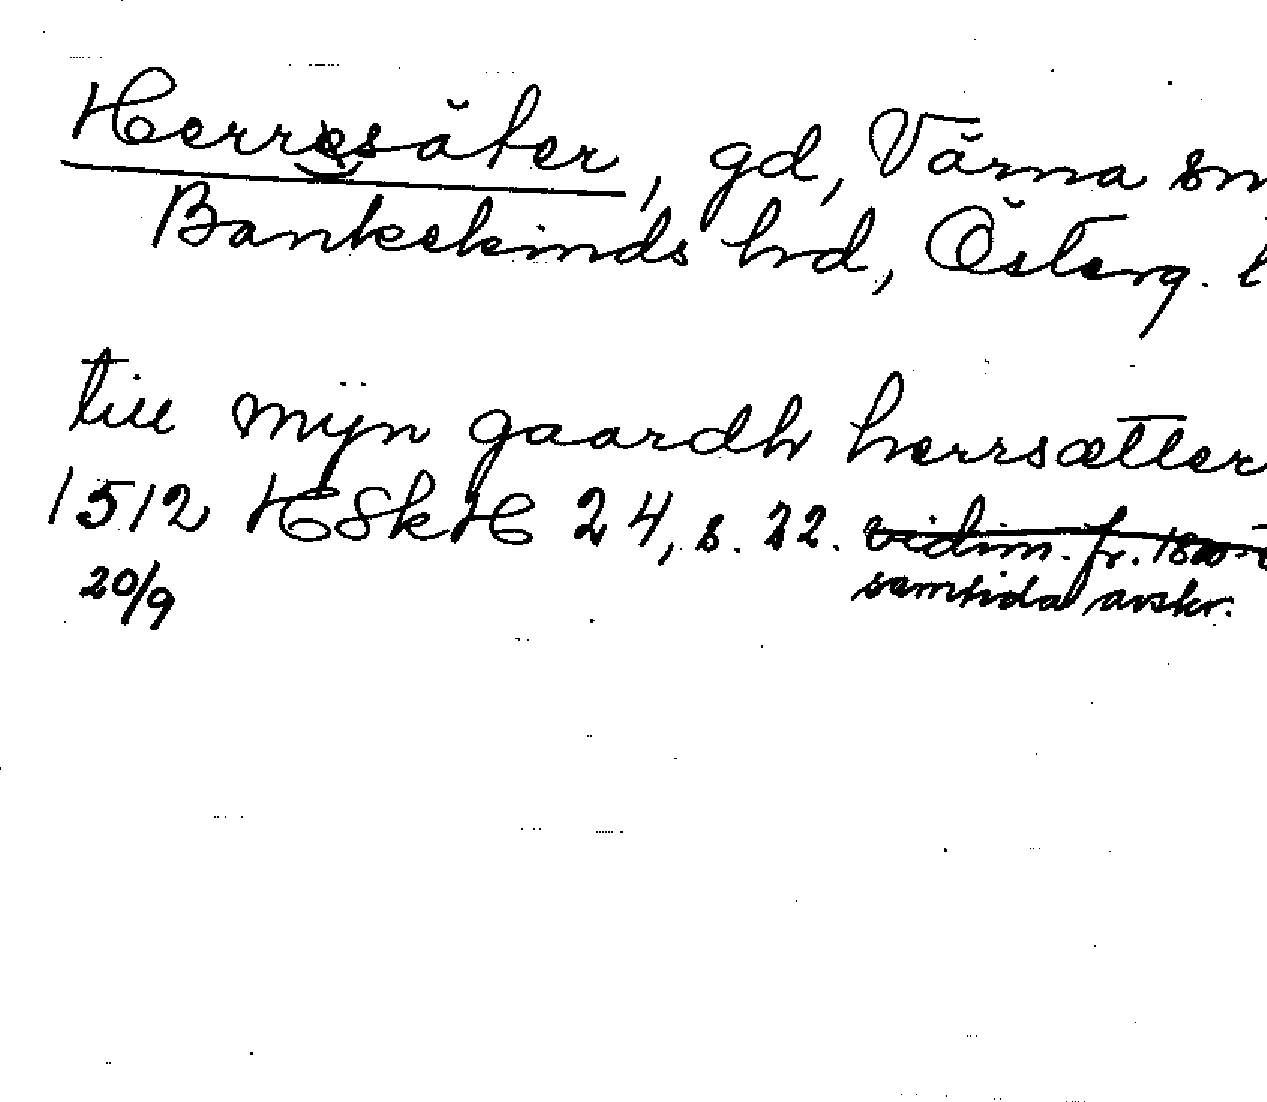 Herresäter, gd, Värna sn
Bankekinds hd, Österg. l
till mÿn gaardh herrsætter
1512 HSkH 24, s. 22. vidim. fr. 1800-t
20/9 samtida avskr.